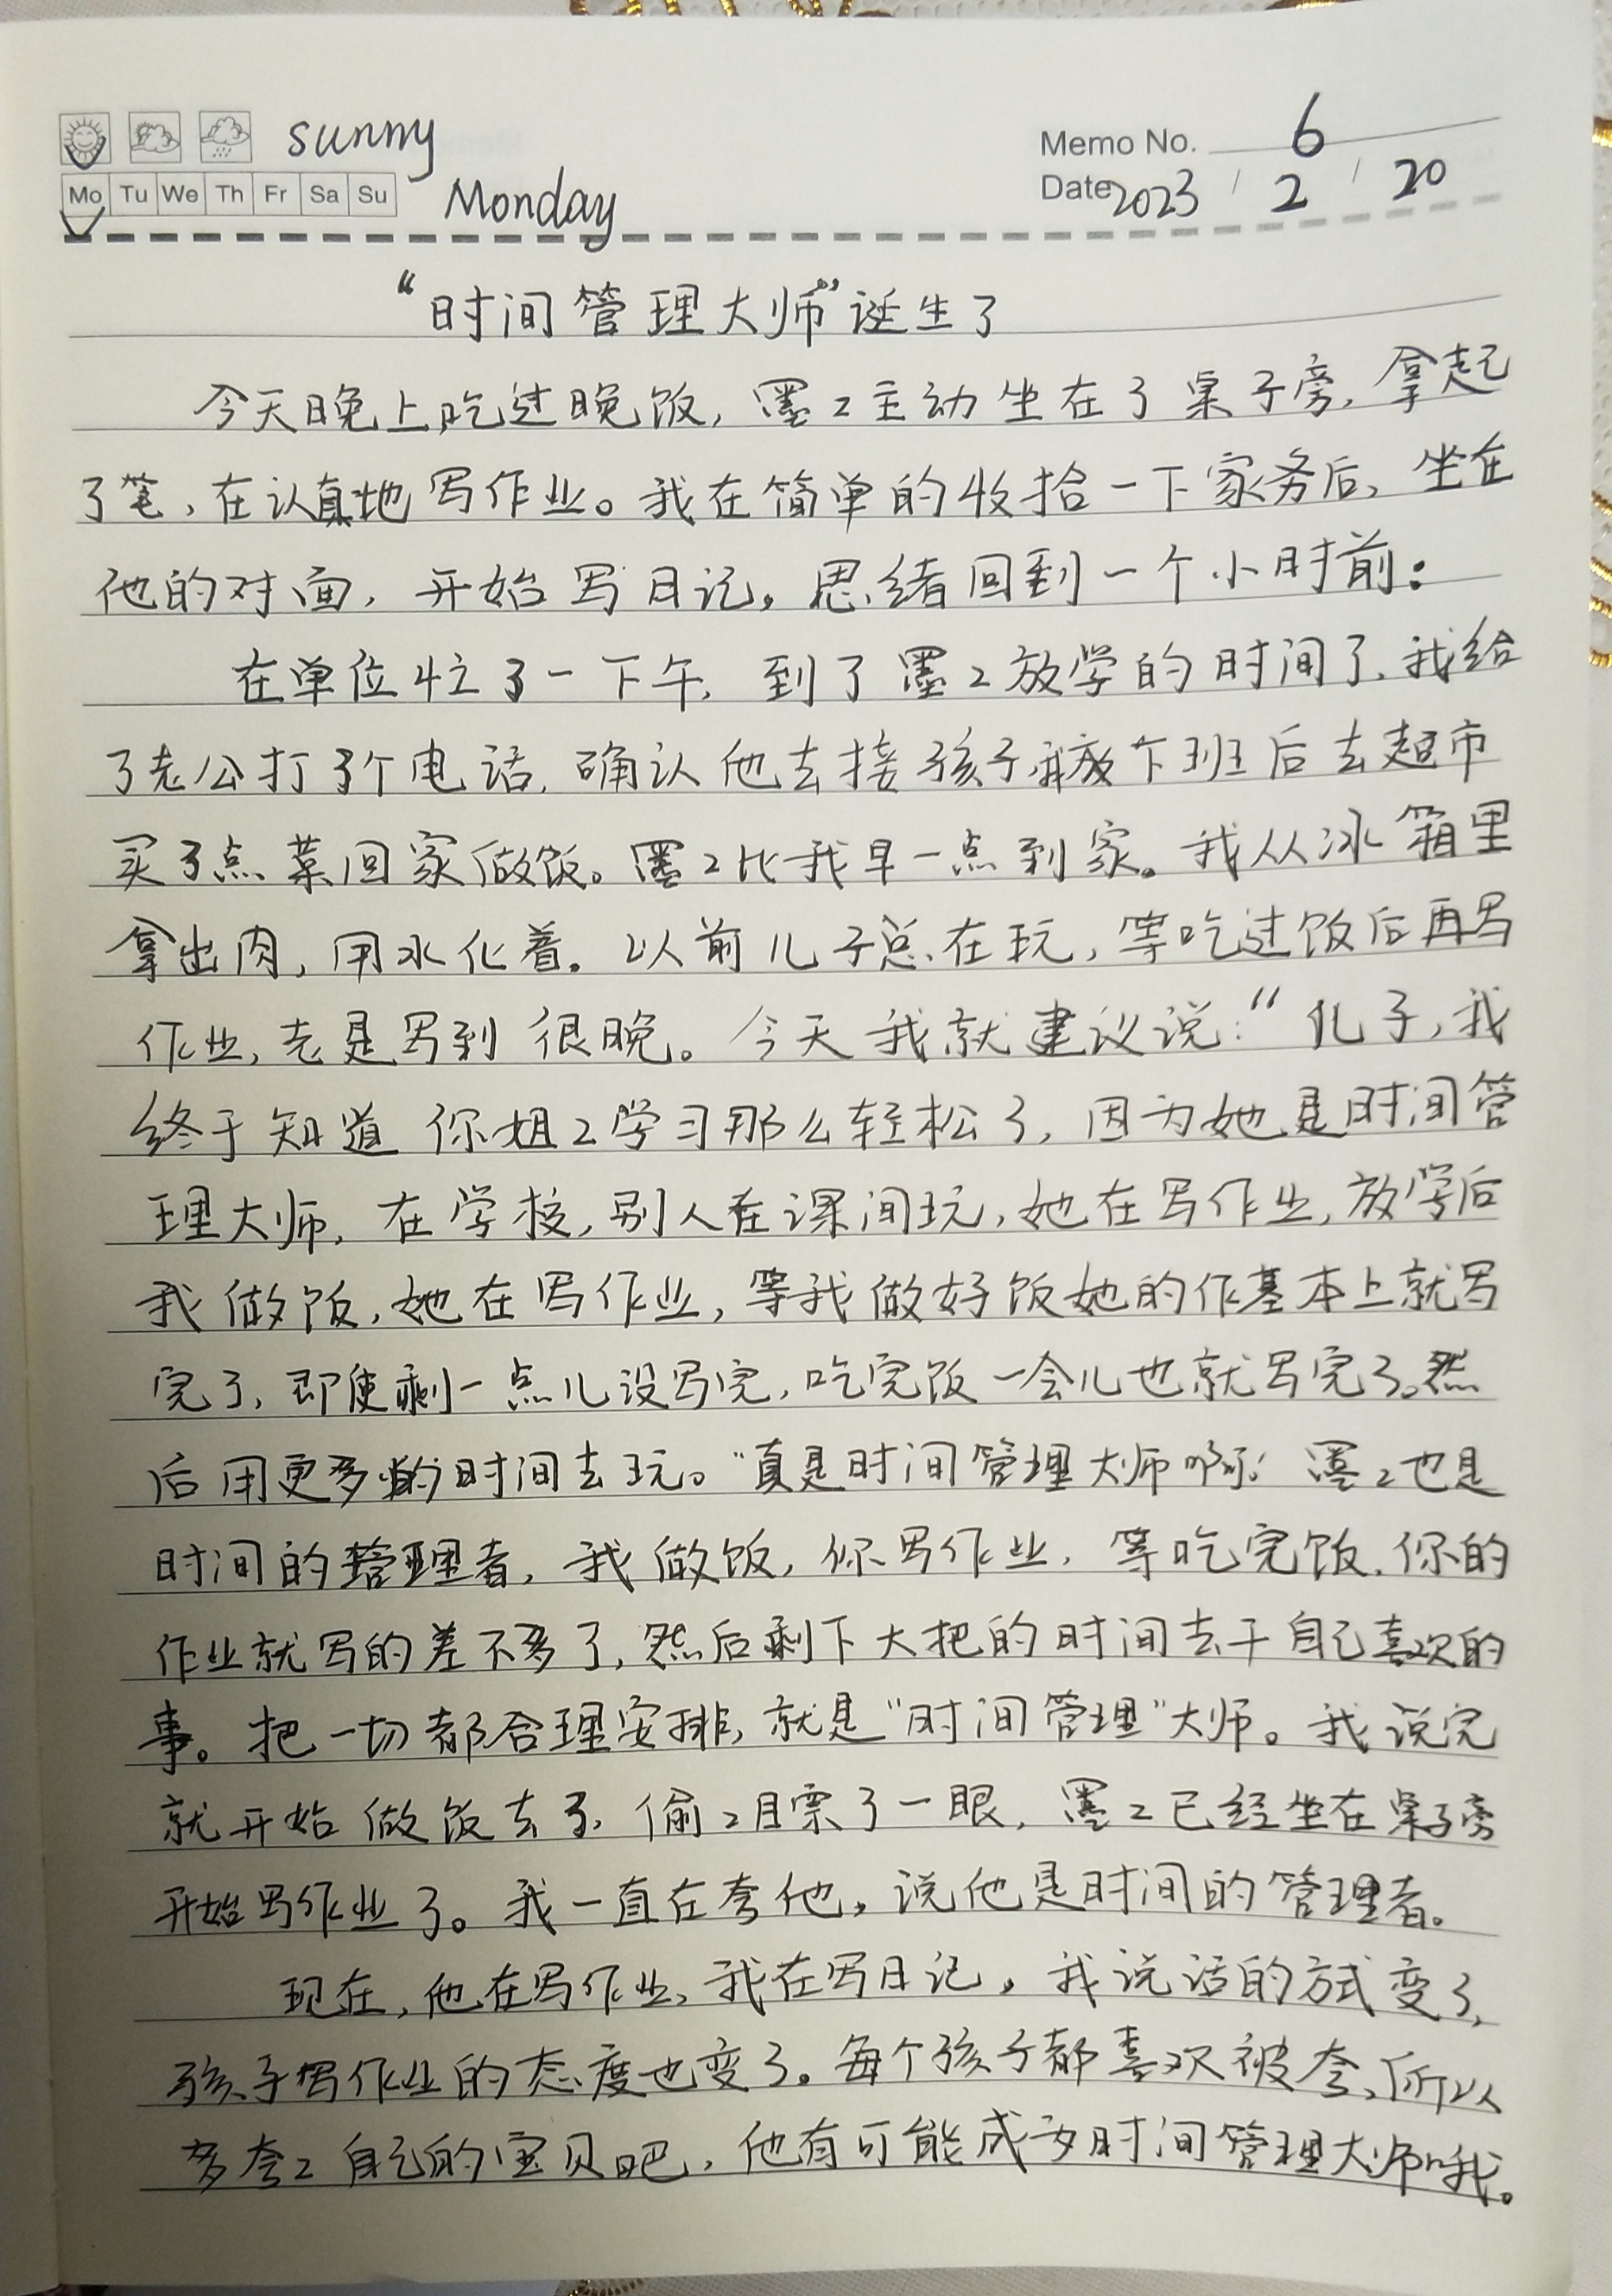 sunny
Memo No. 6
Mo Tu We Th Fr Sa Su Monday
Date 2023 / 2 / 20
“时间管理大师”诞生了
今天晚上吃过晚饭，墨2主动坐在了桌子旁，拿起
了笔，在认真地写作业。我在简单的收拾一下家务后，坐在
他的对面，开始写日记。思绪回到一个小时前：
在单位忙了一下午，到了墨2放学的时间了，我给
了老公打了个电话，确认他去接孩子，我下班后去超市
买了点菜回家做饭。墨2比我早一点到家。我从冰箱里
拿出肉，用水化着。以前儿子总在玩，等吃过饭后再写
作业，老是写到很晚。今天我就建议说：“儿子，我
终于知道你姐2学习那么轻松了，因为她是时间管
理大师，在学校，别人在课间玩，她在写作业，放学后
我做饭，她在写作业，等我做好饭她的作基本上就写
完了，即使剩一点儿没写完，吃完饭一会儿也就写完了。然
后用更多的时间去玩。“真是时间管理大师啊！墨2也是
时间的管理者，我做饭，你写作业，等吃完饭，你的
作业就写的差不多了，然后剩下大把的时间去干自己喜欢的
事。把一切都合理安排，就是“时间管理”大师。我说完
就开始做饭去了，偷2瞟了一眼，墨2已经坐在桌子旁
开始写作业了。我一直在夸他，说他是时间的管理者。
现在，他在写作业，我在写日记，我说话的方式变了，
孩子写作业的态度也变了。每个孩子都喜欢被夸，所以
多夸2自己的宝贝吧，他有可能成为时间管理大师哦。